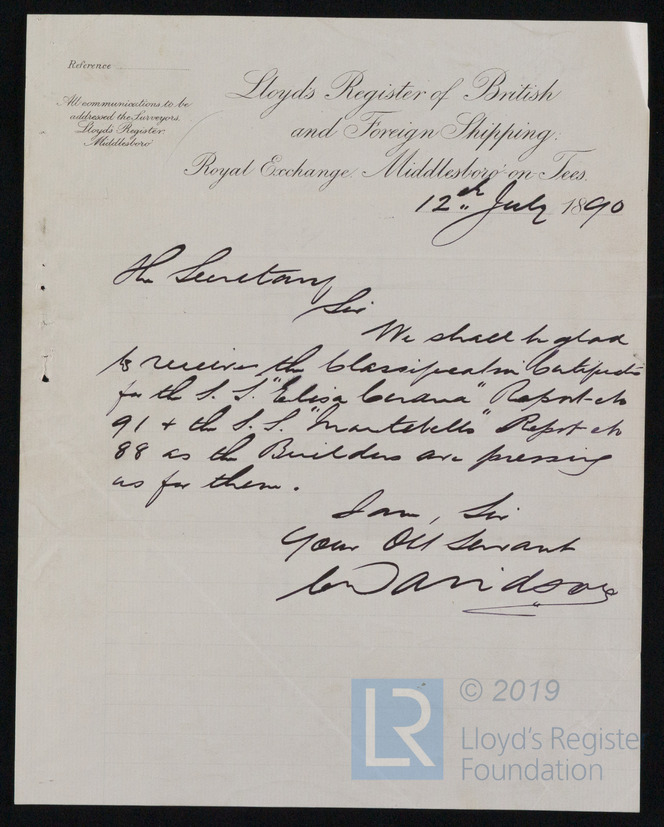 Reference
All communications to be
addressed the Surveyors,
Lloyd's Register.
Middlesboro'
Lloyd's Register of British
and Foreign Shipping.
Royal Exchange. Middlesboro'-on-Tees.
12th July 1890
The Secretary
Sir
We shall be glad
to receive the Classification Certificate
for the S.S. "Elisa " Report No
91 + the S.S. "Montebello" Report No
88 as the Builders are pressing
us for them.
I am, Sir
Your Obt Servant
Davidson
LR
© 2019
Lloyd's Register
Foundation